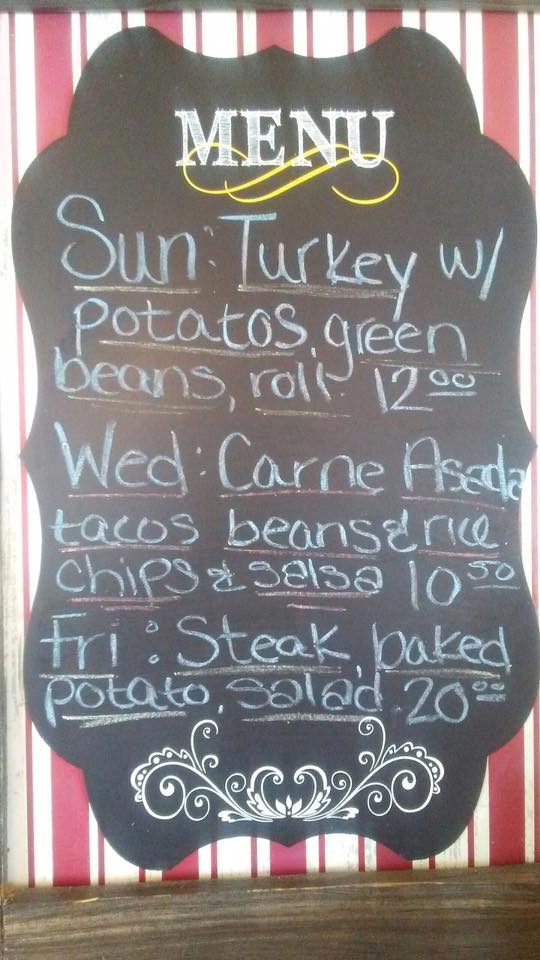 MENU
Sun: Turkey w/
potatos, green
beans, roll. 12 00
Wed: Carne Asada
tacos beans & rice
chips & salsa 10 50
Fri: Steak, baked
potato, salad, 20 00